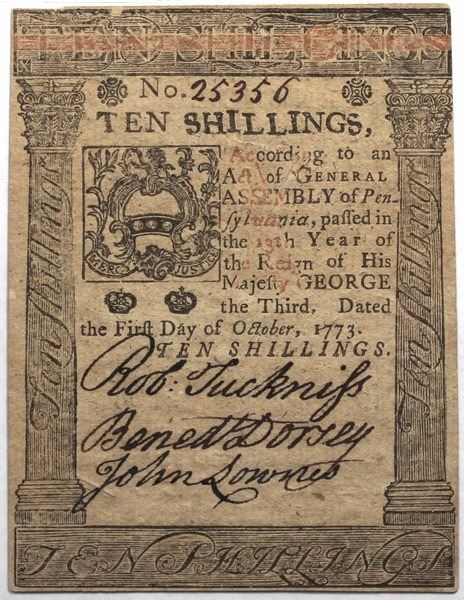 TEN SHILLINGS
No. 25356
TEN SHILLINGS,
According to an
Act of GENERAL
ASSEMBLY of Pen-
sylvania, paſſed in
the 13th Year of
the Reign of His
Majeſty GEORGE
the Third. Dated
the Firſt Day of October, 1773.
TEN SHILLINGS.
MERCY JUSTICE
Rob: Tuckniſs
Bened Dorsey
John Lownes
Ten Shillings
Ten Shillings
TEN SHILLINGS